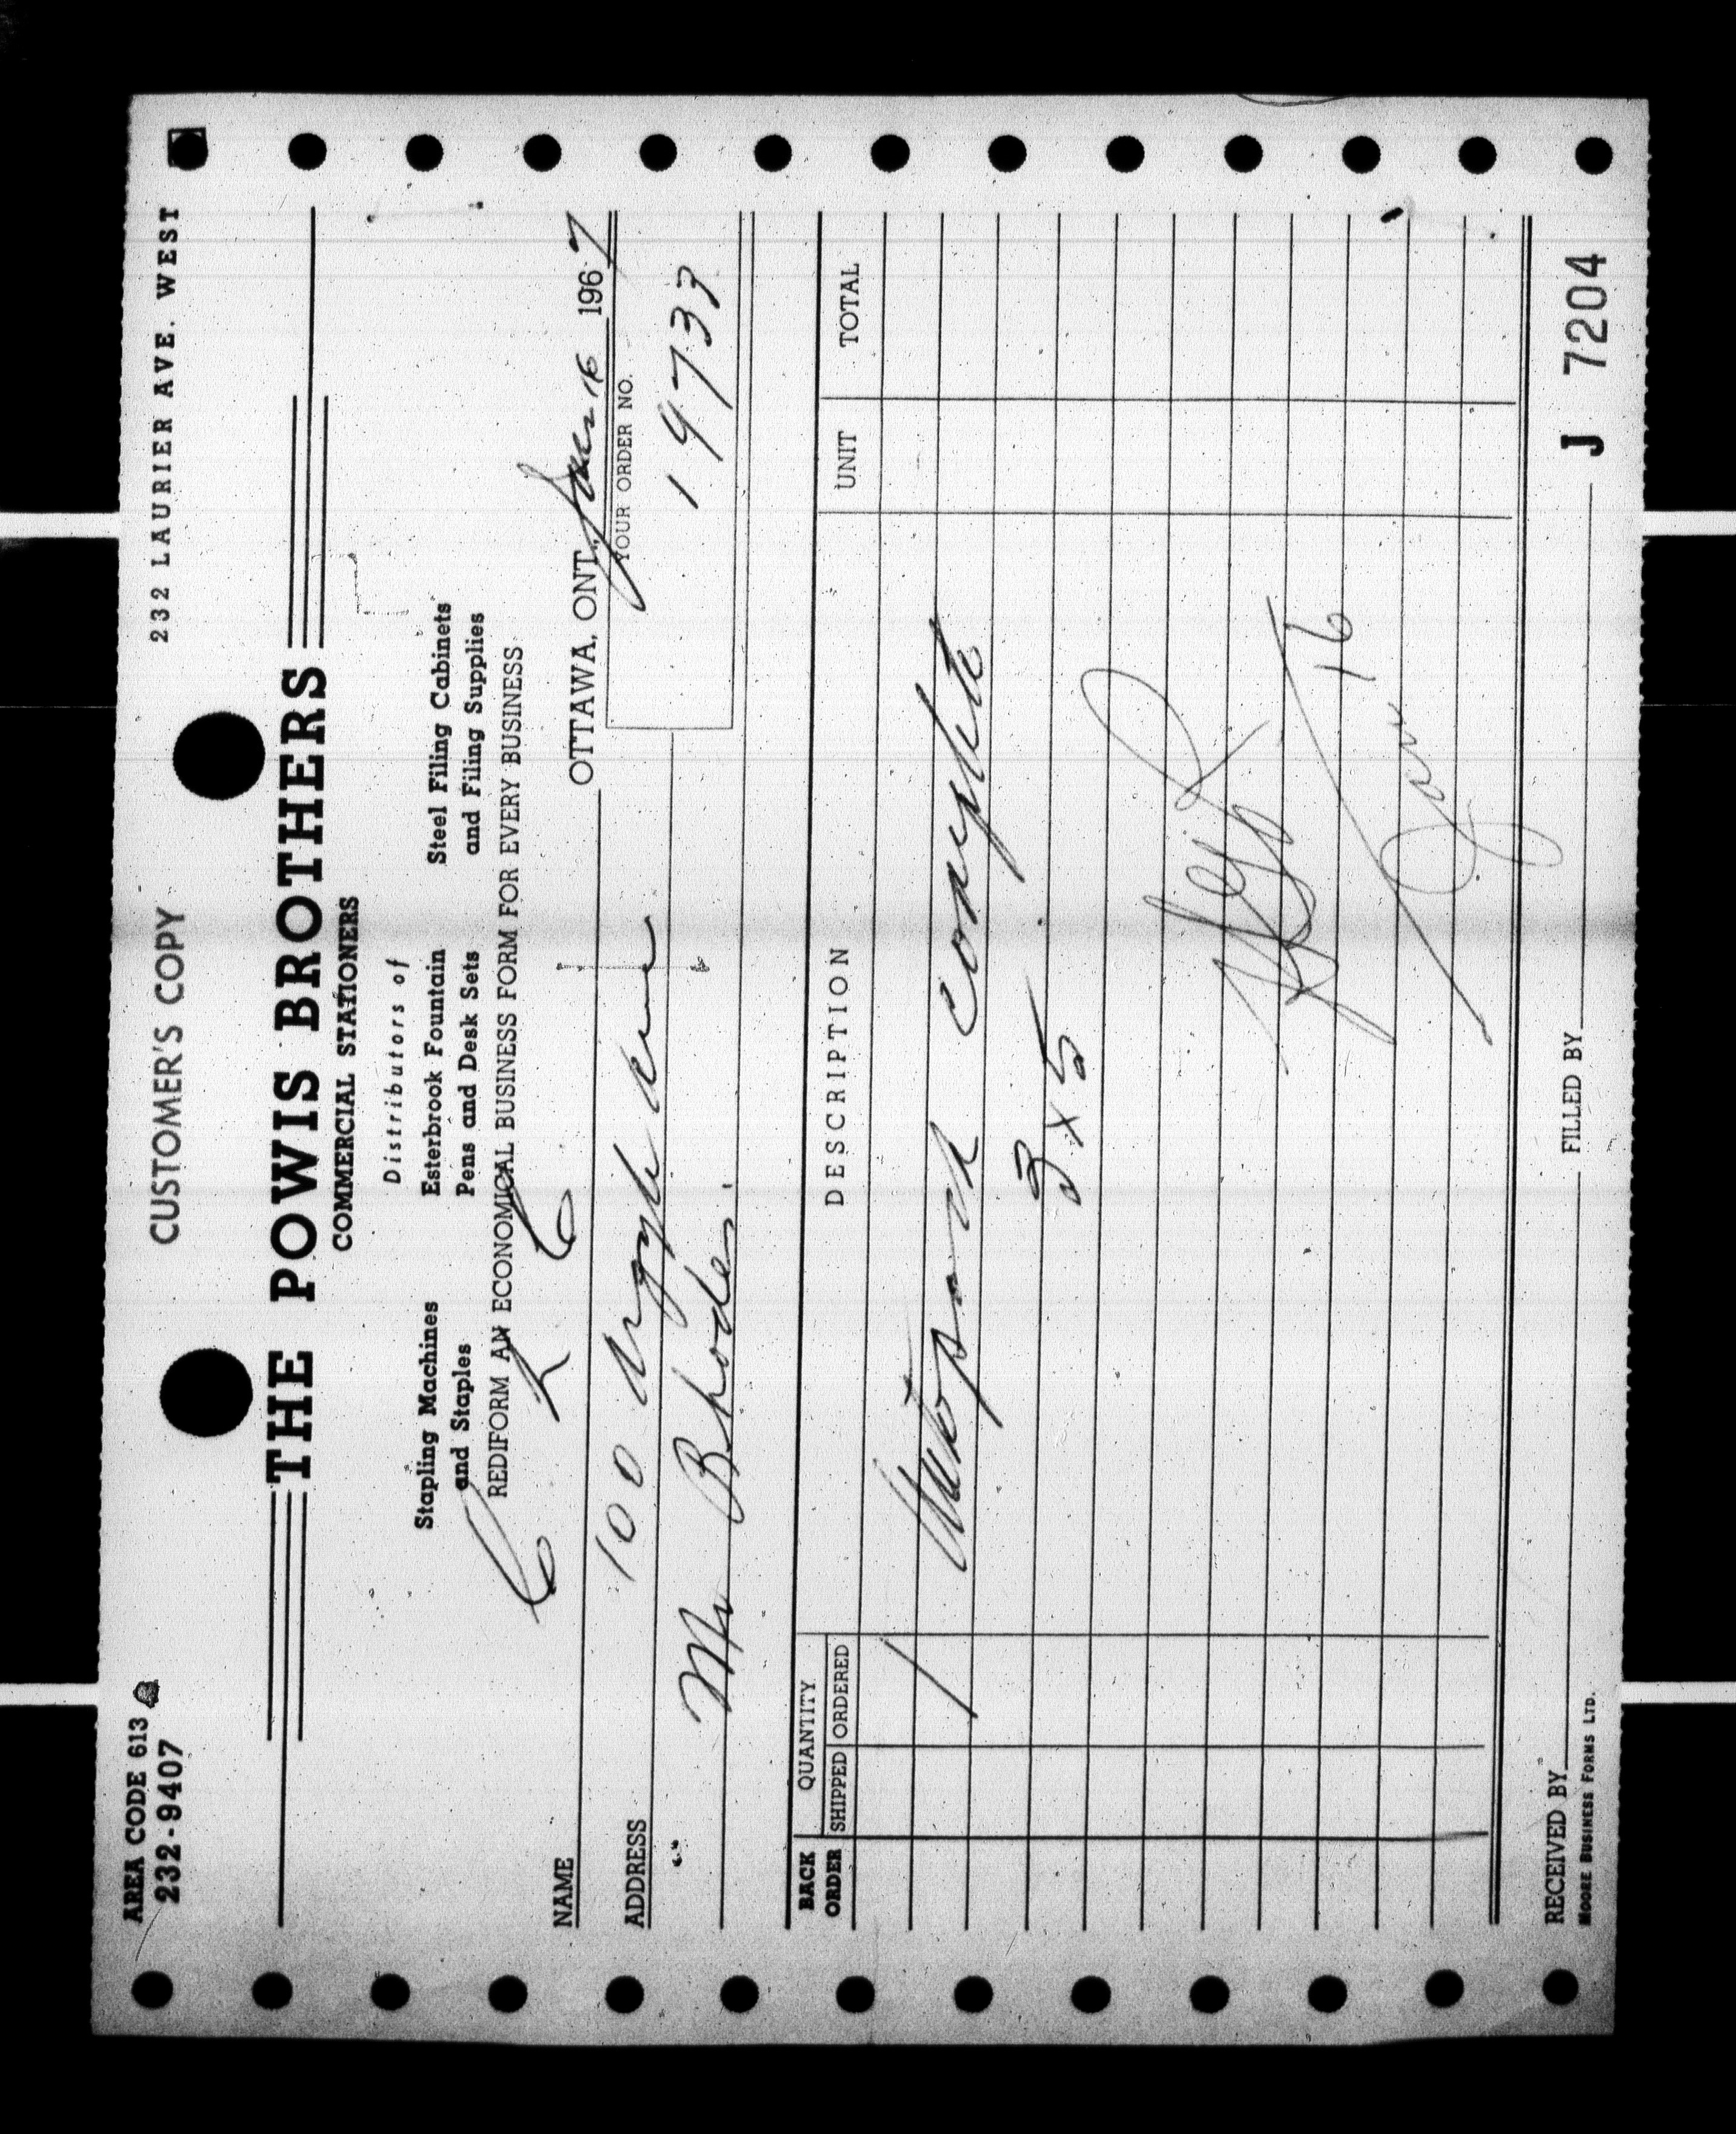 AREA CODE 613
232-9407
CUSTOMER'S COPY
232 LAURIER AVE. WEST
THE POWIS BROTHERS
COMMERCIAL STATIONERS
Distributors of
Stapling Machines
and Staples
Esterbrook Fountain
Pens and Desk Sets
Steel Filing Cabinets
and Filing Supplies
REDIFORM AN ECONOMICAL BUSINESS FORM FOR EVERY BUSINESS
NAME C L C OTTAWA, ONT., Jan 16 1967
ADDRESS 100 Argyle ave
YOUR ORDER NO.
19737
Mr Bhodes.
BACK ORDER
QUANTITY
SHIPPED ORDERED
DESCRIPTION
UNIT
TOTAL
1 complete
3 x 5
Jan 16
RECEIVED BY FILLED BY J 7204
MOORE BUSINESS FORMS LTD.